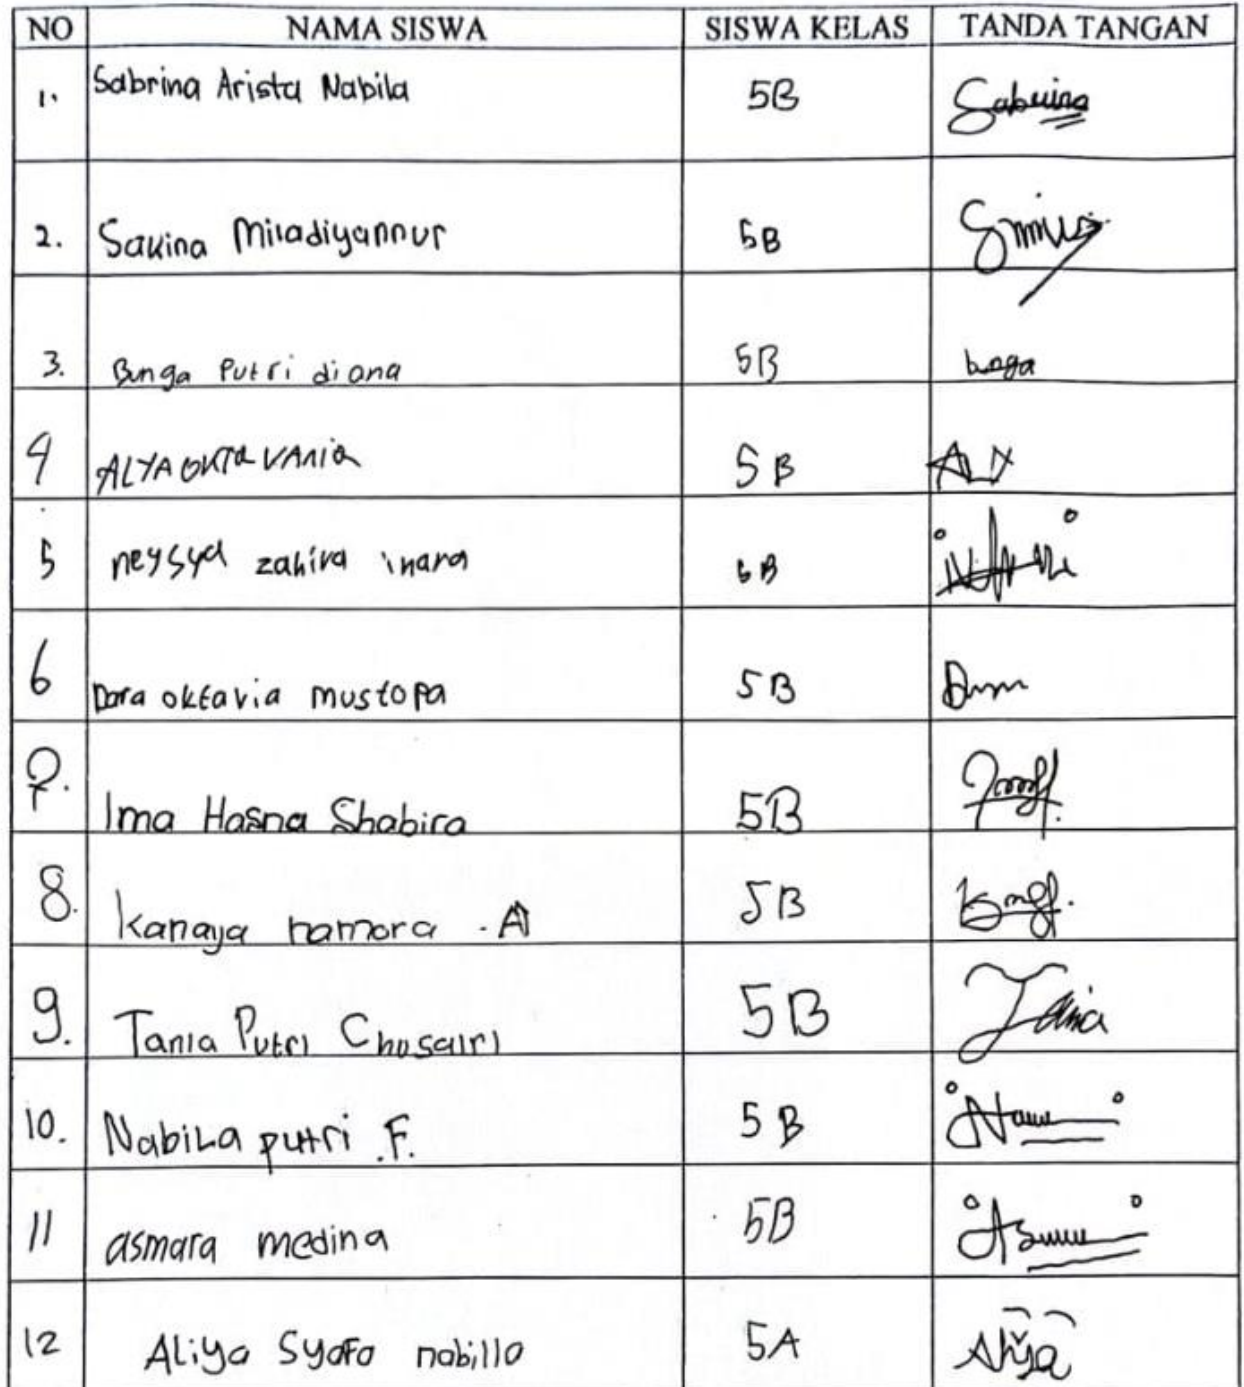 NO NAMA SISWA SISWA KELAS TANDA TANGAN
1. Sabrina Arista Nabila 5B Sabrina
2. Sakina Miladiyannur 5B
3. Bunga Putri diana 5B bunga
4 ALYA OKTAVANIA 5B
5 neysya zahira inara 5B
6 Dara oktavia mustopa 5B
7. Ima Hasna Shabira 5B
8. Kanaya namora .A 5B
9. Tania Putri Chosairi 5B Tania
10. Nabila putri .F. 5B
11 asmara medina 5B
12 Aliya Syafa nabilla 5A Aliya